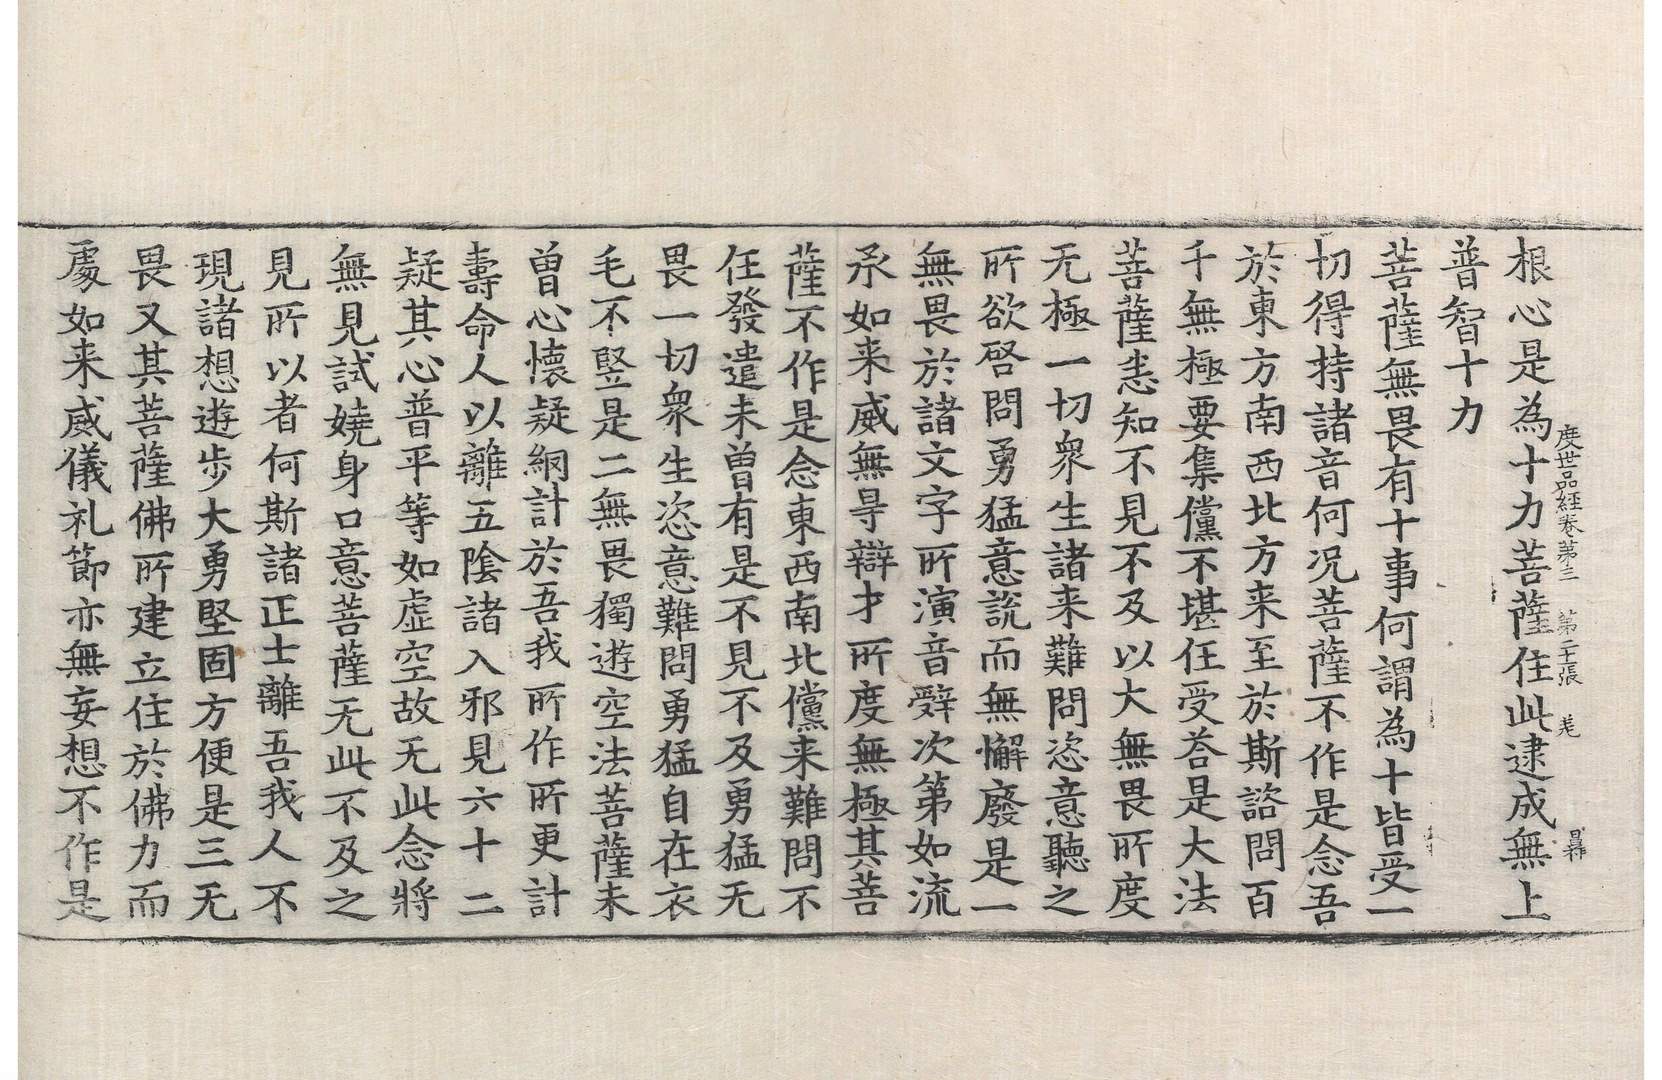 度世品經卷第三　第二十張　羌
根心是為十力菩薩住此逮成無上
普智十力
菩薩無畏有十事何謂為十皆受一
切得持諸音何况菩薩不作是念吾
於東方南西北方来至於斯諮問百
千無極要集儻不堪任受荅是大法
菩薩恚知不見不及以大無畏所度
无極一切衆生諸来難問恣意聽之
所欲啓問勇猛意說而無懈廢是一
無畏於諸文字所演音辤次第如流
承如来威無㝵辯才所度無極其菩
薩不作是念東西南北儻来難問不
任發遣未曽有是不見不及勇猛无
畏一切衆生恣意難問勇猛自在衣
毛不竪是二無畏獨遊空法菩薩未
曽心懷疑網計於吾我所作所更計
壽命人以離五陰諸入邪見六十二
疑其心普平等如虛空故无此念將
無見試嬈身口意菩薩无此不及之
見所以者何斯諸正士離吾我人不
現諸想遊步大勇堅固方便是三无
畏又其菩薩佛所建立住於佛力而
處如来威儀礼節亦無妄想不作是